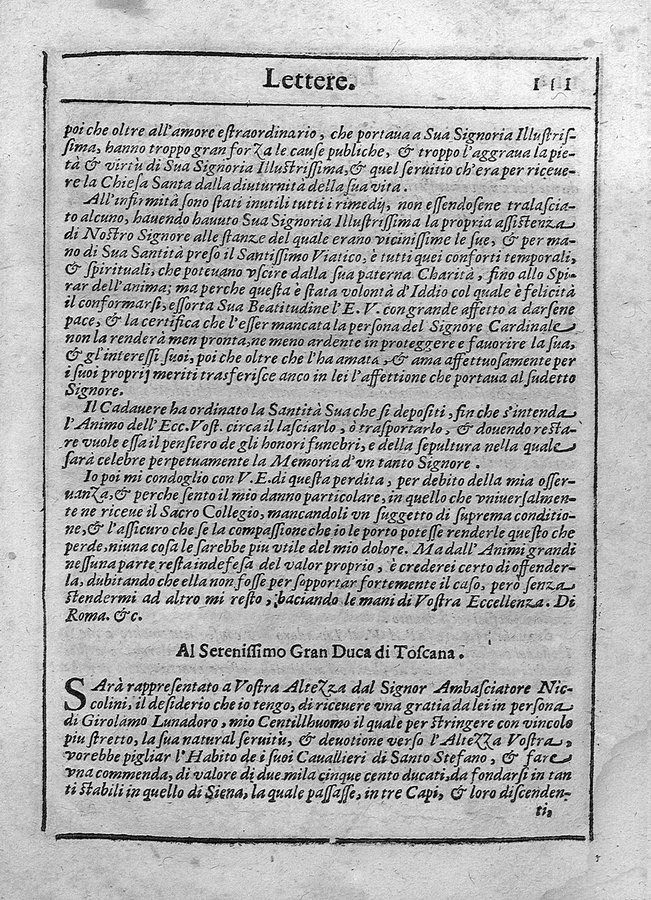 Lettere. 151
poi che oltre all'amore estraordinario, che portaua a Sua Signoria Illustris-
sima, hanno troppo gran forza le cause publiche, & troppo l'aggraua la pie-
tà & virtù di Sua Signoria Illustrissima, & quel seruitio ch'era per riceue-
re la Chiesa Santa dalla diuturnità della sua vita.
All'infirmità sono stati inutili tutti i rimedij, non essendosene tralascia-
to alcuno, hauendo hauuto Sua Signoria Illustrissima la propria assistenza
di Nostro Signore alle stanze del quale erano vicinissime le sue, & per ma-
no di Sua Santità preso il Santissimo Viatico, è tutti quei conforti temporali,
& spirituali, che poteuano vscire dalla sua paterna Charità, fino allo Spi-
rar dell'anima; ma perche questa è stata volontà d'Iddio col quale è felicità
il conformarsi, essorta Sua Beatitudine l'E. V. con grande affetto a darsene
pace, & la certifica che l'esser mancata la persona del Signore Cardinale
non la renderà men pronta, ne meno ardente in proteggere e fauorire la sua,
& gl'interessi suoi, poi che oltre che l'ha amata, & ama affettuosamente per
i suoi proprij meriti trasferisce anco in lei l'affettione che portaua al sudetto
Signore.
Il Cadauere ha ordinato la Santità Sua che si depositi, fin che s'intenda
l'Animo dell'Ecc. Vost. circa il lasciarlo, ò trasportarlo, & douendo resta-
re vuole essa il pensiero de gli honori funebri, e della sepultura nella quale
sarà celebre perpetuamente la Memoria d'vn tanto Signore.
Io poi mi condoglio con V. E. di questa perdita, per debito della mia osser-
uanza, & perche sento il mio danno particolare, in quello che vniuersalmen-
te ne riceue il Sacro Collegio, mancandoli vn suggetto di suprema conditio-
ne, & l'assicuro che se la compassione che io le porto potesse renderle questo che
perde, niuna cosa le sarebbe piu vtile del mio dolore. Ma dall'Animi grandi
nessuna parte resta indefesa del valor proprio, è crederei certo di offender-
la, dubitando che ella non fosse per sopportar fortemente il caso, però senza
stendermi ad altro mi resto, baciando le mani di Vostra Eccellenza. Di
Roma. &c.
Al Serenissimo Gran Duca di Toscana.
SArà rappresentato a Vostra Altezza dal Signor Ambasciatore Nic-
colini, il desiderio che io tengo, di riceuere vna gratia da lei in persona
di Girolamo Lunadoro, mio Centillhuomo il quale per stringere con vincolo
piu stretto, la sua natural seruitù, & deuotione verso l'Altezza Vostra,
vorebbe pigliar l'Habito de i suoi Cauallieri di Santo Stefano, & fare
vna commenda, di valore di due mila cinque cento ducati, da fondarsi in tan
ti stabili in quello di Siena, la quale passasse, in tre Capi, & loro discenden-
ti,